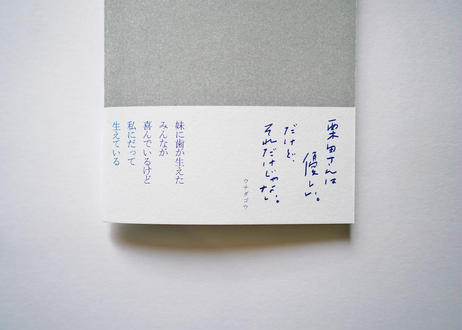 栗田さんは
優しい。
だけど、
それだけじゃない。
ウチダゴウ
妹に歯が生えた
みんなが
喜んでいるけど
私にだって
生えている